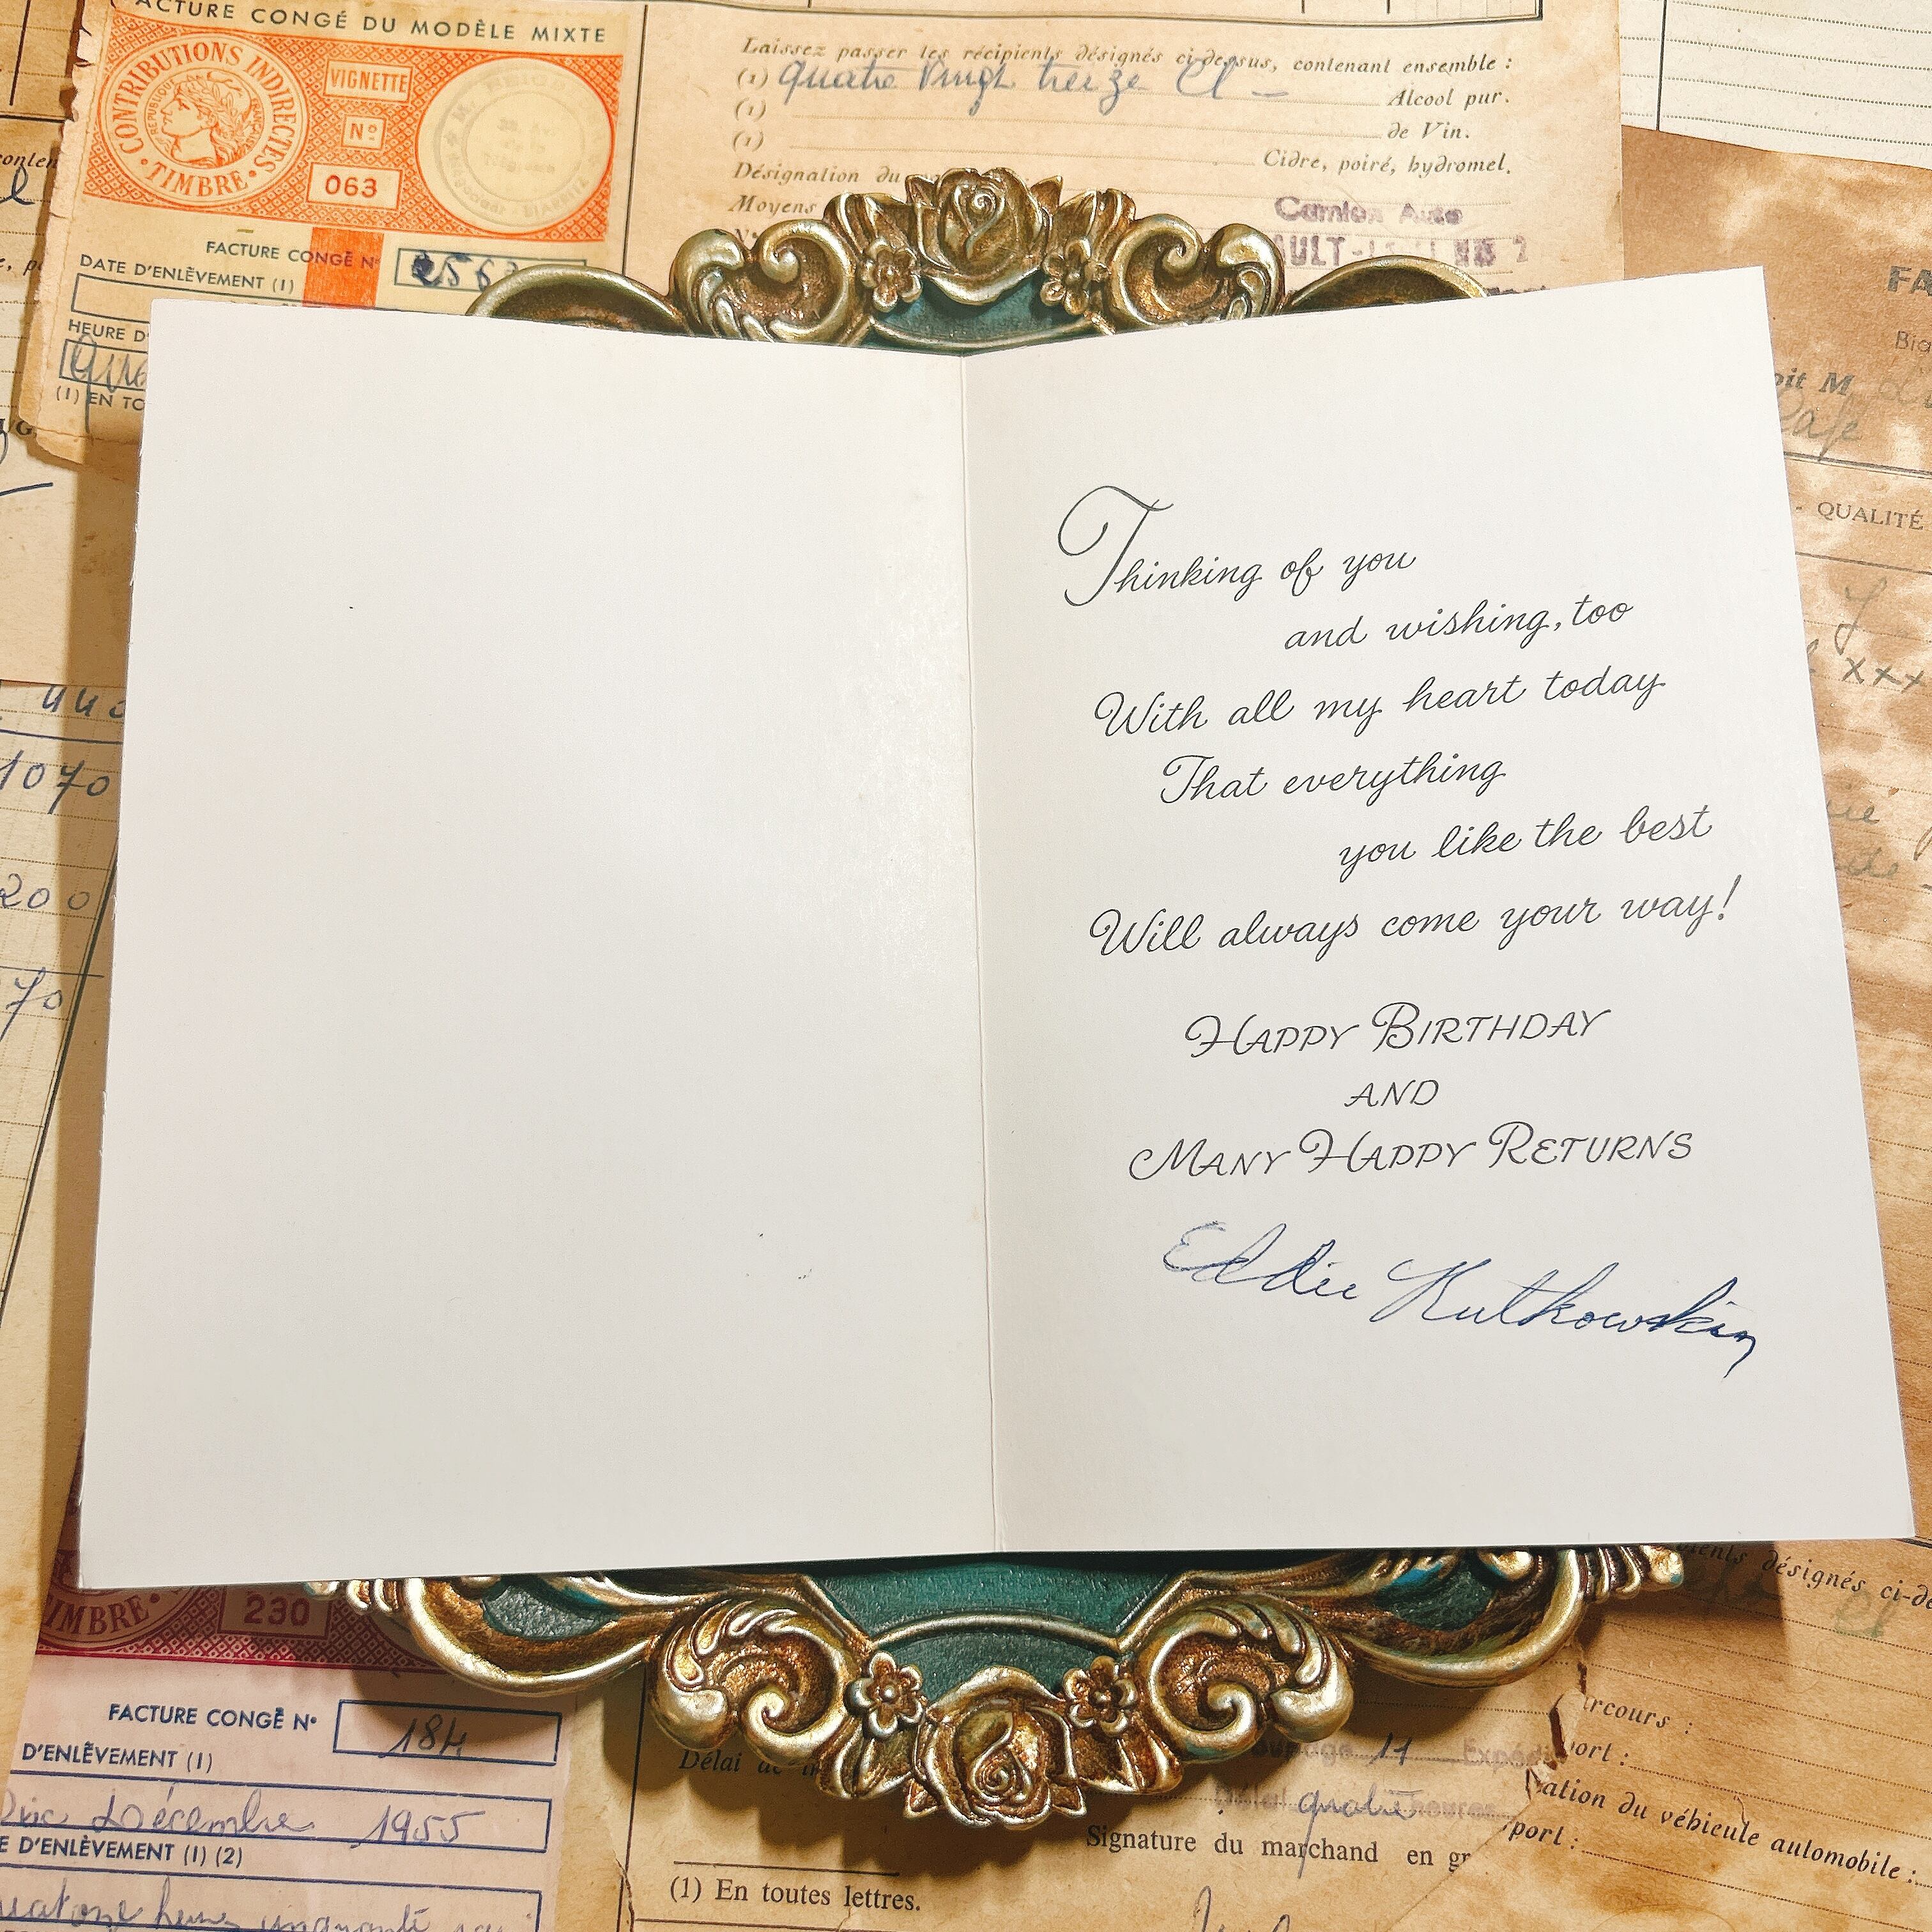 FACTURE CONGÉ DU MODÈLE MIXTE
CONTRIBUTIONS INDIRECTES
TIMBRE
VIGNETTE
Nº
063
FACTURE CONGÉ Nº
DATE D'ENLÈVEMENT (1)
HEURE D'
(1) EN TO
Laissez passer les récipients désignés ci-dessus, contenant ensemble :
(1) quatre vingt treize
Alcool pur.
(1)
de Vin.
(1)
Cidre, poiré, hydromel.
Désignation du
Moyens
Camion Auto
QUALITÉ
xxx
1070
200
70
Thinking of you
and wishing, too
With all my heart today
That everything
you like the best
Will always come your way!
HAPPY BIRTHDAY
AND
MANY HAPPY RETURNS
Eddie Rutkowski
TIMBRE
230
FACTURE CONGÉ Nº 184
D'ENLÈVEMENT (1)
Décembre 1955
E D'ENLÈVEMENT (1) (2)
Délai de
Signature du marchand en gr
(1) En toutes lettres.
désignés ci-de
rcours :
port :
ation du véhicule automobile :
port :